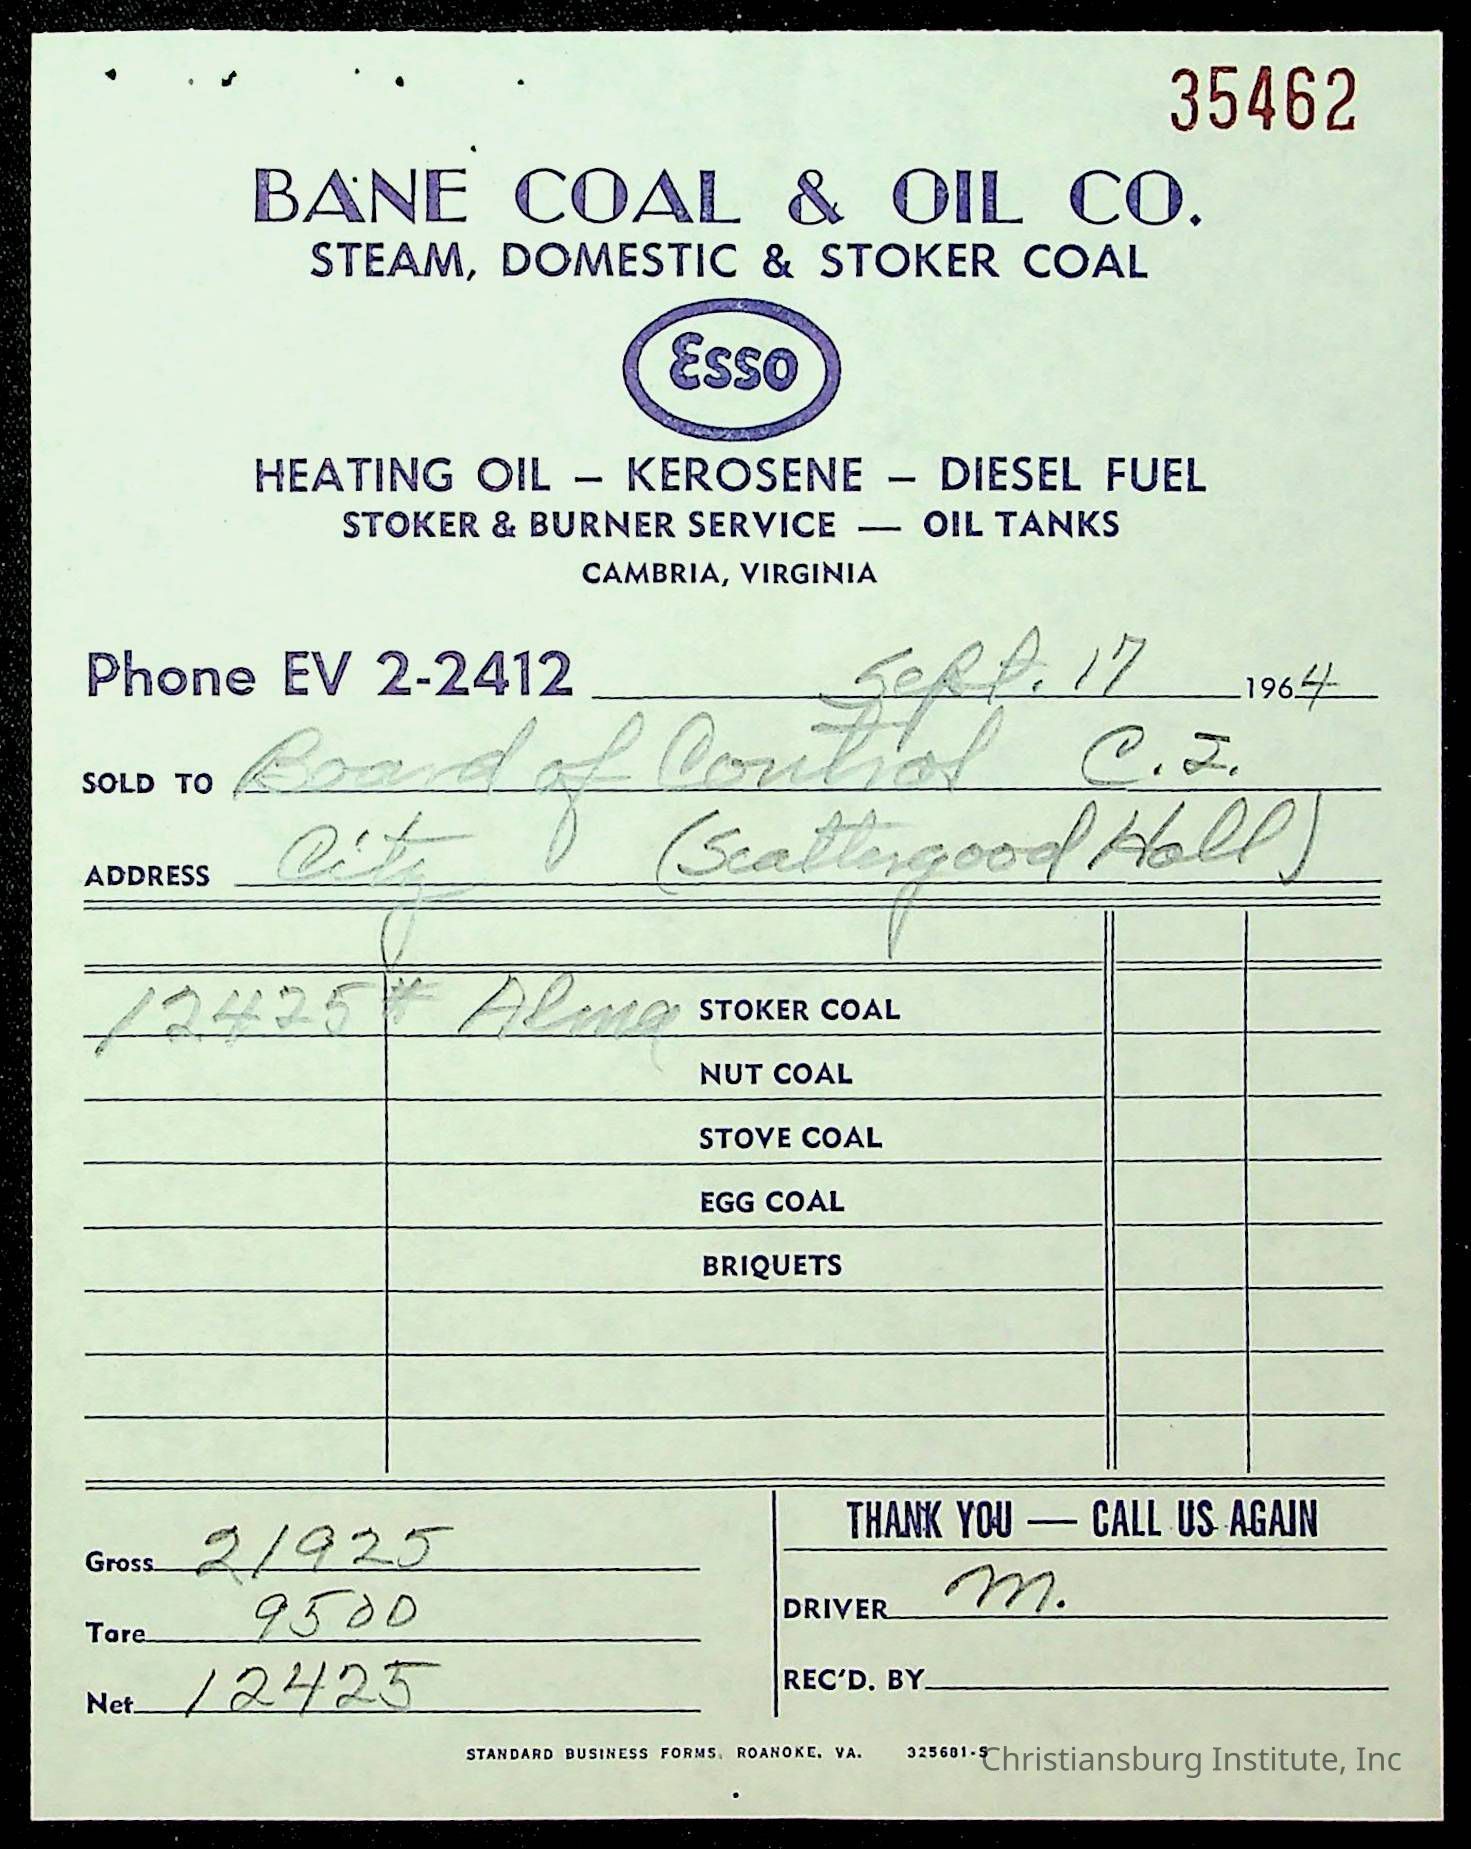 35462
BANE COAL & OIL CO.
STEAM, DOMESTIC & STOKER COAL
Esso
HEATING OIL — KEROSENE — DIESEL FUEL
STOKER & BURNER SERVICE — OIL TANKS
CAMBRIA, VIRGINIA
Phone EV 2-2412 Sept. 17 1964
SOLD TO Board of Control C. I.
ADDRESS City (Scattergood Hall)
12425 # Alma STOKER COAL
NUT COAL
STOVE COAL
EGG COAL
BRIQUETS
THANK YOU — CALL US AGAIN
Gross 21925
Tare 9500
Net 12425
DRIVER M.
REC'D. BY
STANDARD BUSINESS FORMS, ROANOKE, VA. 325681-S
Christiansburg Institute, Inc